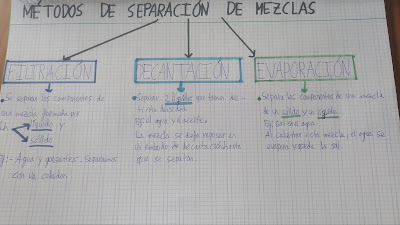 MÉTODOS DE SEPARACIÓN DE MEZCLAS
FILTRACIÓN
Se separan los componentes de
una mezcla formada por
un líquido y
sólido
Ej:- Agua y
con un colador.
DECANTACIÓN
Separar 2 líquidos que tienen dis-
tinta densidad
Ej: el agua y el aceite.
La mezcla se deja reposar en
un embudo de decantación hasta
que se separan.
EVAPORACIÓN
Separa los componentes de una mezcla
de un sólido y un líquido.
Ej: Sal en el agua.
Al calentar esta mezcla, el agua se
evapora y queda la sal.